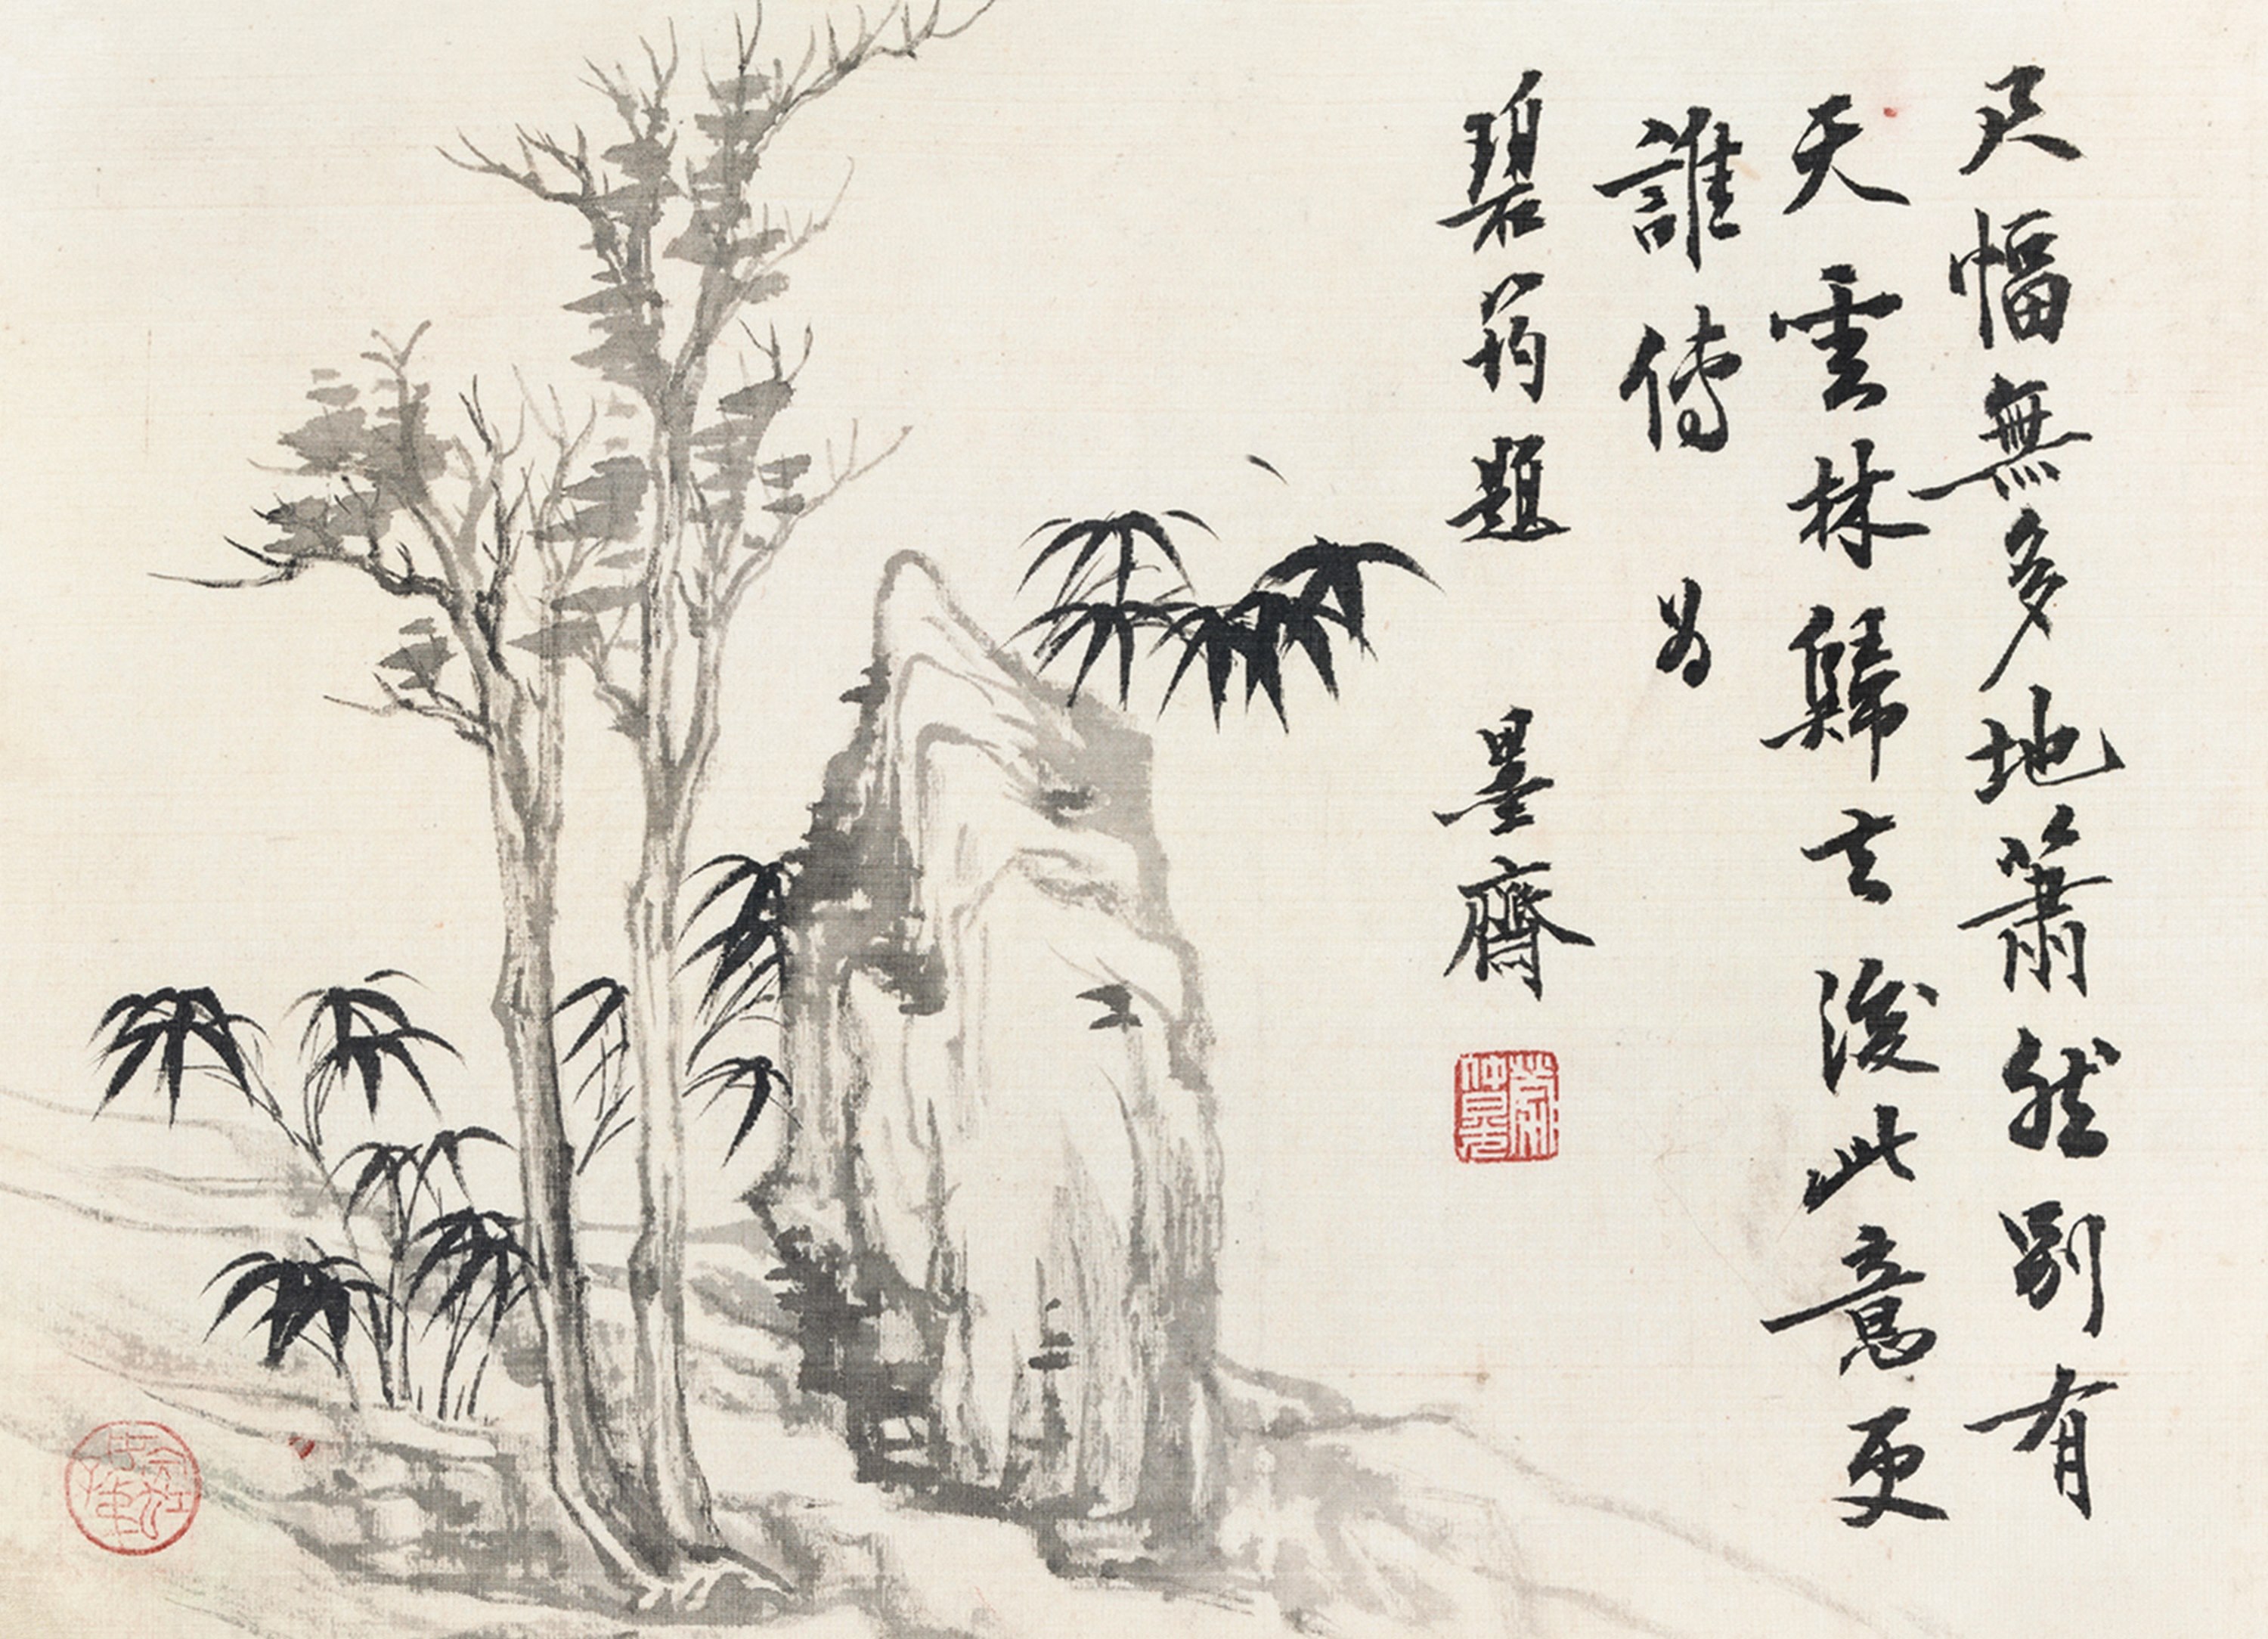 尺幅無多地蕭然別有
天雲林歸去後此意更
誰傳 為
碧筠題 墨齋